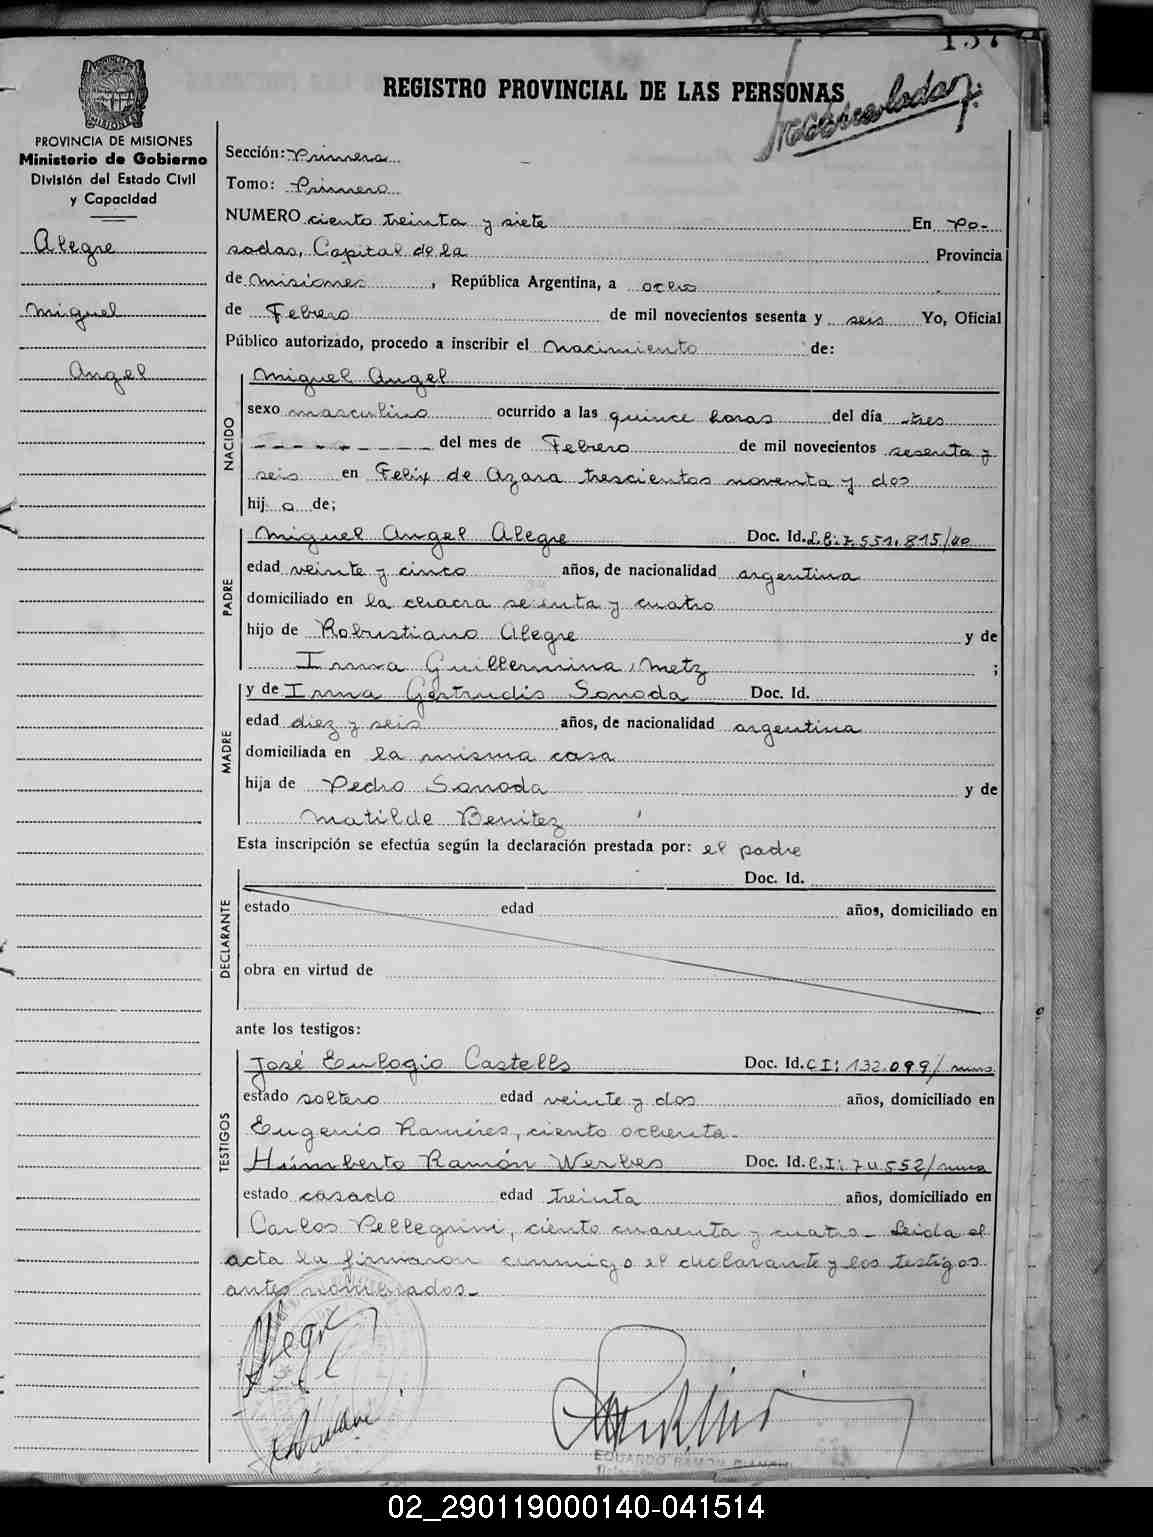 137
REGISTRO PROVINCIAL DE LAS PERSONAS
PROVINCIA DE MISIONES
Ministerio de Gobierno
División del Estado Civil
y Capacidad
Alegre
Miguel
Angel
Sección: Primera
Tomo: Primero
NUMERO ciento treinta y siete En Po-
sadas, Capital de la Provincia
de Misiones, República Argentina, a ocho
de Febrero de mil novecientos sesenta y seis Yo, Oficial
Público autorizado, procedo a inscribir el nacimiento de:
NACIDO
Miguel Angel
sexo masculino ocurrido a las quince horas del día tres
del mes de Febrero de mil novecientos sesenta y
seis en Felix de Azara trescientos noventa y dos
hij o de;
PADRE
Miguel Angel Alegre Doc. Id. 7.551.815
edad veinte y cinco años, de nacionalidad argentina
domiciliado en la chacra y cuatro
hijo de Robustiano Alegre y de
Irma Guillermina Metz ;
MADRE
y de Irma Gertrudis Sonoda Doc. Id.
edad diez y seis años, de nacionalidad argentina
domiciliada en la misma casa
hija de Pedro Sonoda y de
Matilde Benitez
Esta inscripción se efectúa según la declaración prestada por: el padre
DECLARANTE
Doc. Id.
estado edad años, domiciliado en
obra en virtud de
ante los testigos:
TESTIGOS
José Eulogio Castells Doc. Id. C I: 132.099/
estado soltero edad veinte y dos años, domiciliado en
Eugenio Ramires, ciento ochenta.
Humberto Ramón Doc. Id. C.I:
estado casado edad treinta años, domiciliado en
Carlos Pellegrini, ciento cuarenta y cuatro. Leida el
acta la firmaron conmigo el declarante y los testigos
antes nombrados.
EDUARDO RAMON
02_290119000140-041514